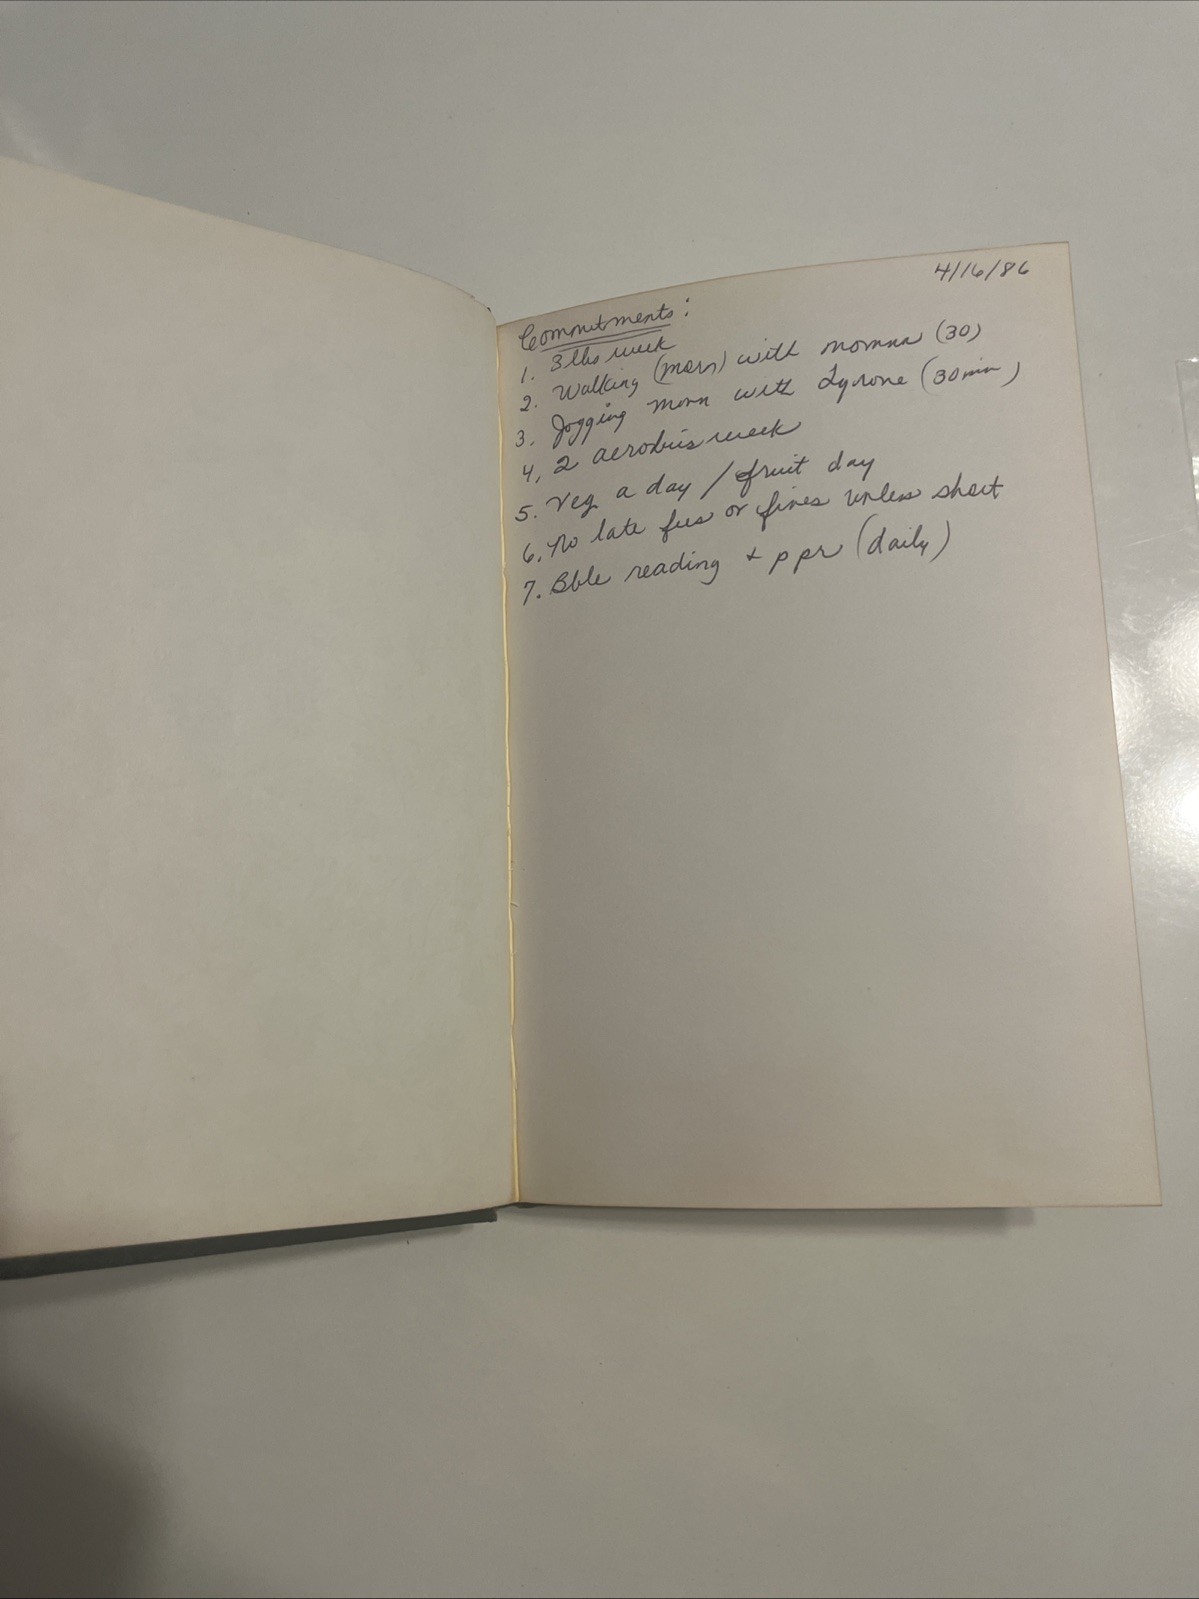 4/16/86
Commitments:
1. 3 lbs week
2. Walking (morn) with momma (30)
3. Jogging morn with Tyrone (30 min)
4, 2 aerobics week
5. Veg a day / fruit day
6. No late fees or fines unless short
7. Bble reading + p pr (daily)